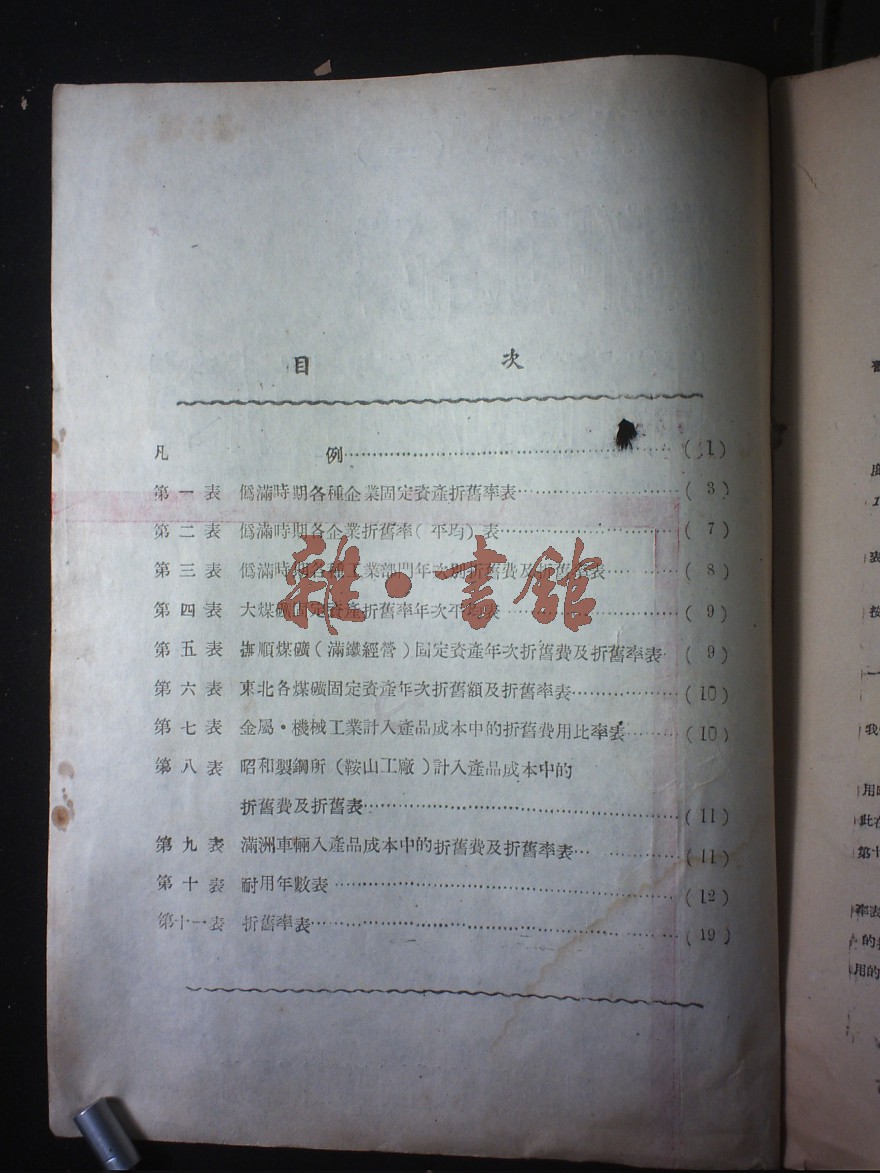 目 次
凡 例……(1)
第一表 偽滿時期各種企業固定資產折舊率表……(3)
第二表 偽滿時期各企業折舊率(平均)表……(7)
第三表 偽滿時期各種工業部門年次別折舊費及折舊 表……(8)
第四表 大煤礦固定資產折舊率年次 表……(9)
第五表 撫順煤礦(滿鐵經營)固定資產年次折舊費及折舊率表·(9)
第六表 東北各煤礦固定資產年次折舊額及折舊率表……(10)
第七表 金屬·機械工業計入產品成本中的折舊費用比率表……(10)
第八表 昭和製鋼所(鞍山工廠)計入產品成本中的
折舊費及折舊表……(11)
第九表 滿洲車輛入產品成本中的折舊費及折舊率表……(11)
第十表 耐用年數表……(12)
第十一表 折舊率表……(19)
雜·書館
表
按
一
我
用
此在
第十
率表
的
用的